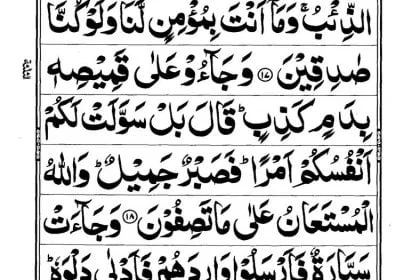 الذِّئْبُ ۚ وَمَاۤ اَنْتَ بِمُؤْمِنٍ لَّنَا وَلَوْ كُنَّا
صٰدِقِيْنَ ۝۱۷ وَجَآءُوْ عَلٰى قَمِيْصِهٖ
بِدَمٍ كَذِبٍ ؕ قَالَ بَلْ سَوَّلَتْ لَكُمْ
اَنْفُسُكُمْ اَمْرًا ؕ فَصَبْرٌ جَمِيْلٌ ؕ وَاللّٰهُ
الْمُسْتَعَانُ عَلٰى مَا تَصِفُوْنَ ۝۱۸ وَجَآءَتْ
سَيَّارَةٌ فَاَرْسَلُوْا وَارِدَهُمْ فَاَدْلٰى دَلْوَهٗ ؕ